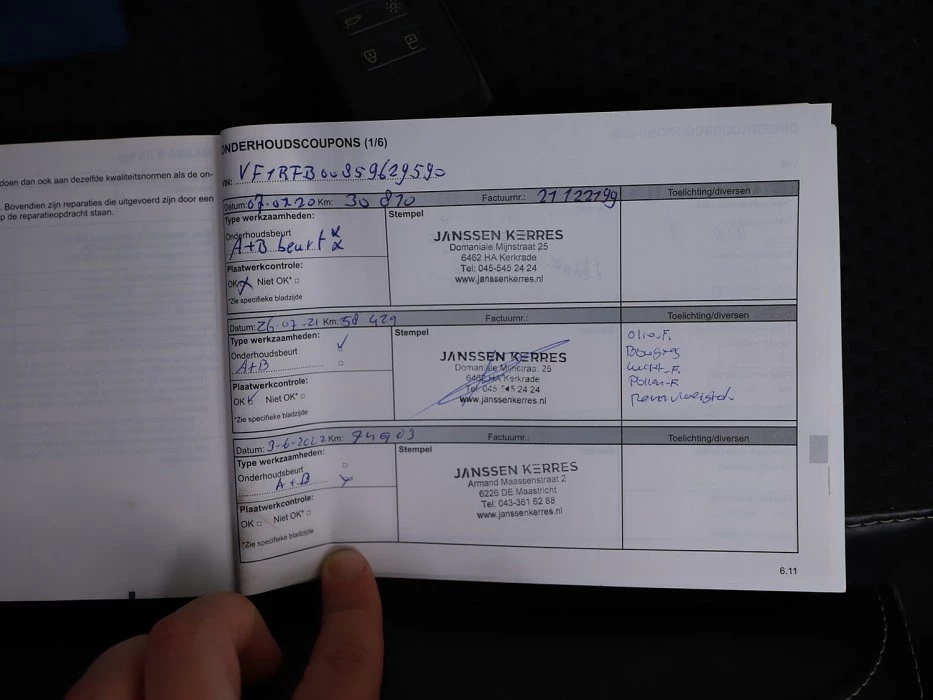 doen dan ook aan dezelfde kwaliteitsnormen als de on-
. Bovendien zijn reparaties die uitgevoerd zijn door een
p de reparatieopdracht staan.
ONDERHOUDSCOUPONS (1/6)
VF1RFB00859629590
Datum: 07.07.20 Km: 30 810 Factuurnr.: 21122199 Toelichting/diversen
Type werkzaamheden:
Onderhoudsbeurt
A+B beurt
Plaatwerkcontrole:
OK Niet OK*
*Zie specifieke bladzijde
Stempel
JANSSEN KERRES
Domaniale Mijnstraat 25
6462 HA Kerkrade
Tel: 045-545 24 24
www.janssenkerres.nl
Datum: 26-07-21 Km: 58 429 Factuurnr.: Toelichting/diversen
Type werkzaamheden:
Onderhoudsbeurt
A+B
Plaatwerkcontrole:
OK Niet OK*
*Zie specifieke bladzijde
Stempel
JANSSEN KERRES
Domaniale Mijnstraat 25
6462 HA Kerkrade
Tel: 045-545 24 24
www.janssenkerres.nl
Olie-F.
Bougies
Lucht-F.
Pollen-F.
Remvloeistof
Datum: 3-6-2022 Km: 74903 Factuurnr.: Toelichting/diversen
Type werkzaamheden:
Onderhoudsbeurt
A+B
Plaatwerkcontrole:
OK Niet OK*
*Zie specifieke bladzijde
Stempel
JANSSEN KERRES
Armand Maassenstraat 2
6226 DE Maastricht
Tel: 043-361 62 88
www.janssenkerres.nl
6.11